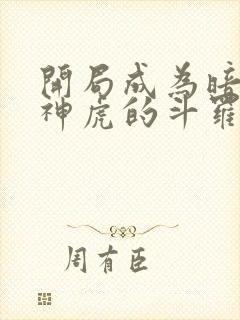 開局成為暗
神虎的斗羅
周有臣